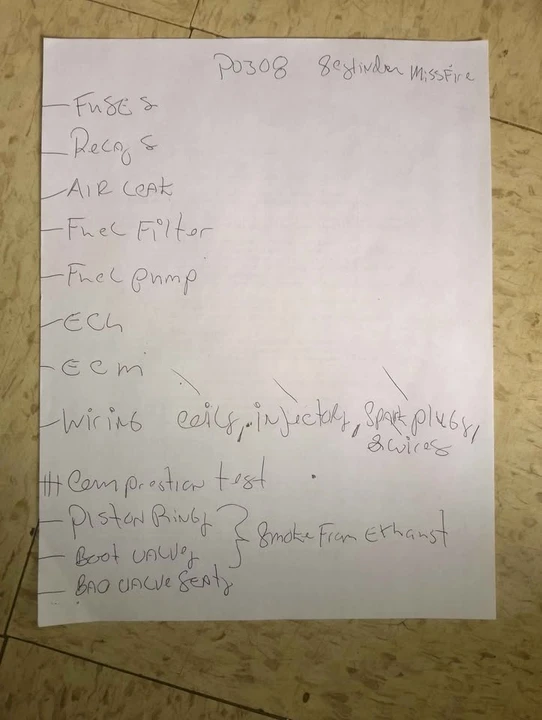 P0308 8 cylinder MissFire
— FuSES
— Recays
— AIR LeaK
— Fuel Filter
— Fuel pump
— ECU
— ECM
— Wiring coils, injectors, Spark plugs,
& wires
Compression test
— PISTON RINGS
— Bent valves } Smoke From Exhaust
— BAD VALVE SEATS